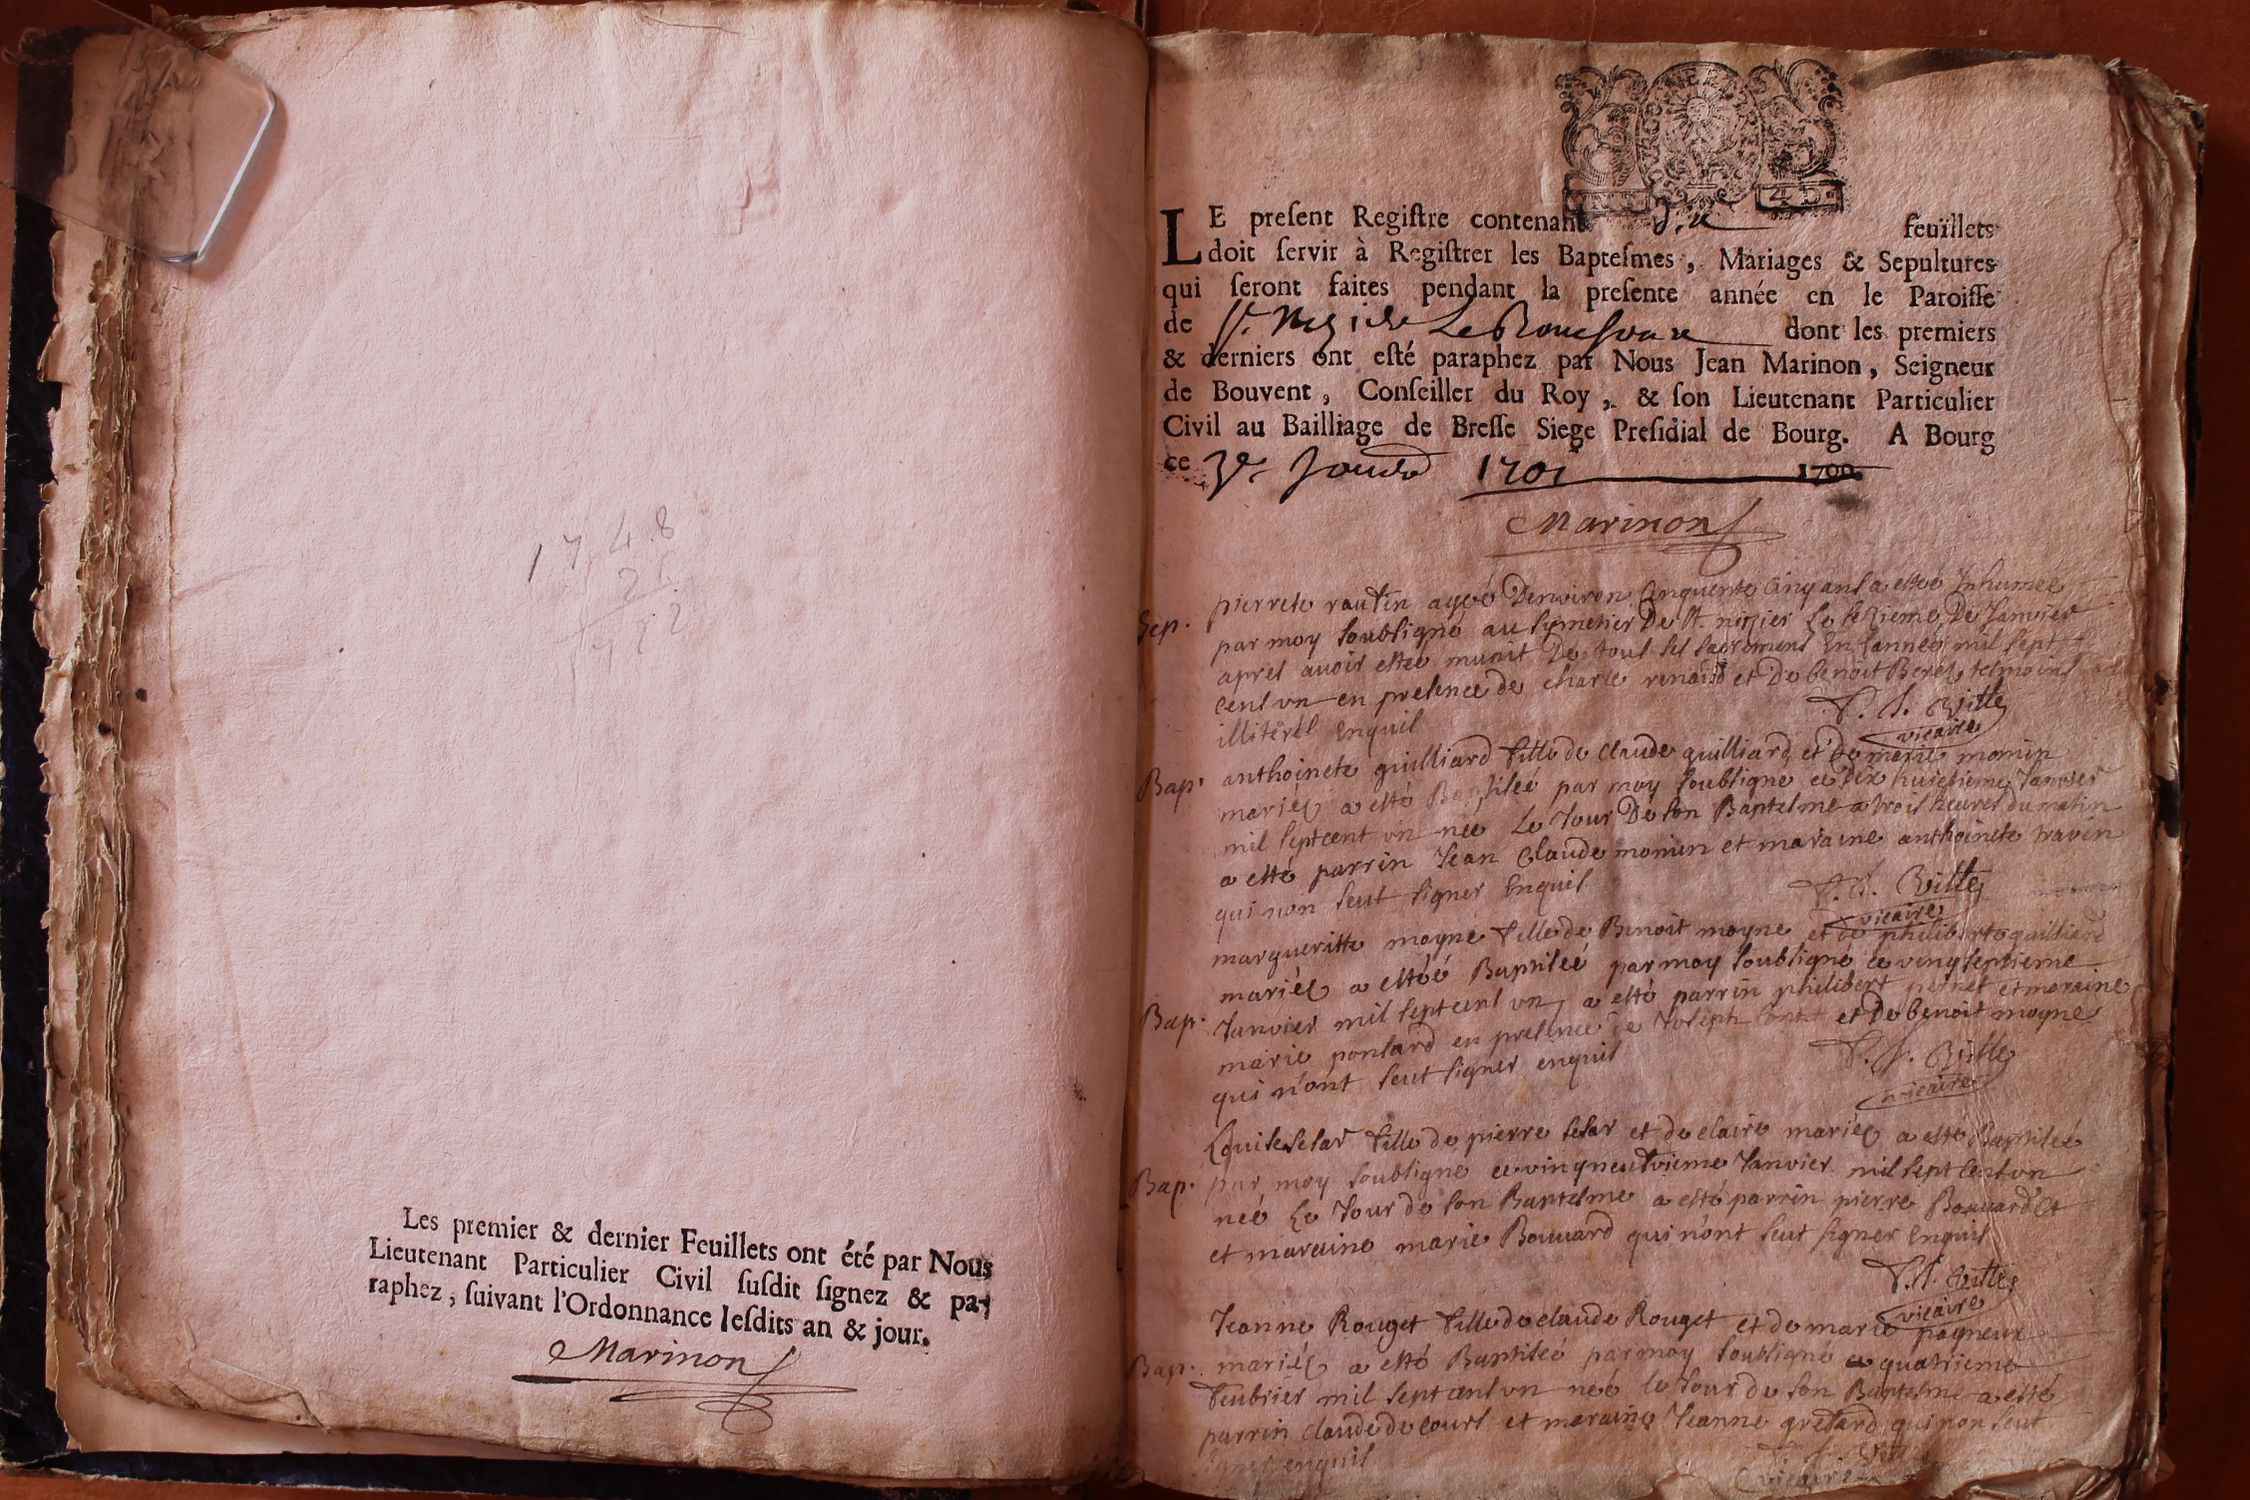 1748
21
Les premier & dernier Feuillets ont été par Nous
Lieutenant Particulier Civil ſuſdit ſignez & pa-
raphez, ſuivant l'Ordonnance leſdits an & jour.
Marinon
LE preſent Regiſtre contenant feuillets
doit ſervir à Regiſtrer les Bapteſmes, Mariages & Sepultures
qui ſeront faites pendant la preſente année en le Paroiſſe
de St. Nizier Le Bouchoux dont les premiers
& derniers ont eſté paraphez par Nous Jean Marinon, Seigneur
de Bouvent, Conſeiller du Roy, & ſon Lieutenant Particulier
Civil au Bailliage de Breſſe Siege Preſidial de Bourg. A Bourg
ce 3e 1701 1700
Marinon
Sep. pierrete agée Denviron Cinquente Cinq ans a esté Inhumée
par moy soubsigné au symetier De St. nizier le De Janvier
apres avoir estee munit De tous ses sacremens En l'année mil sept
cent un en presence de charle renaud et De benoit tesmoins
illiterés Enquis
vicaire
Bap. anthoinete guilliard fille de claude guilliard et De marie monin
mariés a esté Baptisée par moy soubsigné ce Dix huictieme Janvier
mil sept cent un née Le Jour De son Baptesme a trois heures du matin
a esté parrin Jean Claude monin et maraine anthoinete ravin
qui non seut signer Enquis
vicaire
margueritte moyne fille de Benoit moyne et de philiberte guilliard
mariés a estéé Baptisée par moy soubsigné ce vingseptieme
Bap. Janvier mil sept cent un, a esté parrin philibert et maraine
marie ponsard en presence de Joseph et De benoit moyne
qui n'ont seut signer enquis
vicaire
fille de pierre et de claire mariés a esté Baptisée
Bap. par moy soubsigné ce vingneufvieme Janvier mil sept cent un
néé Le Jour de son Baptesme a esté parrin pierre Bouvard et
et maraine marie Bouvard qui n'ont seut signer Enquis
vicaire
Jeanne Rouget fille de claude Rouget et de marie
Bap. mariés a esté Baptisée par moy soubsigné ce quatrieme
feubrier mil sept cent un néé le Jour de son Baptesme a esté
parrin claude decours et maraine Jeanne qui non seut
signer enquis
vicaire